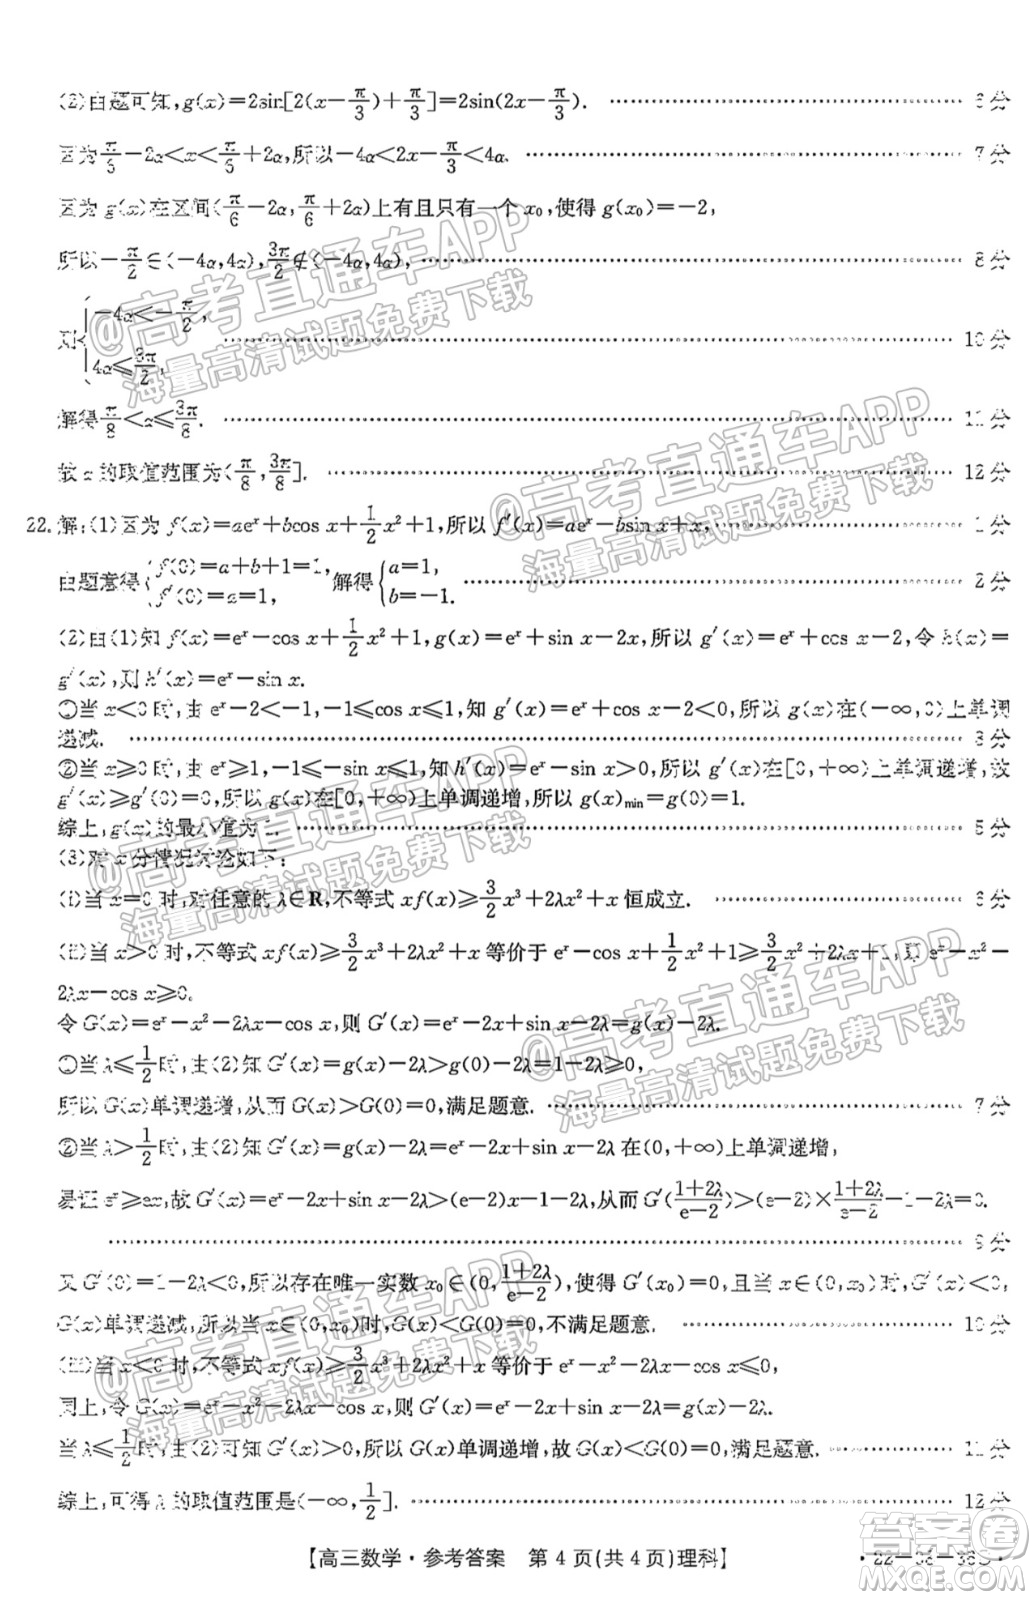 (2)由题可知,g(x)=2sin[2(x-π/3)+π/3]=2sin(2x-π/3). 6分
因为π/6-2α<x<π/6+2α,所以-4α<2x-π/3<4α. 7分
因为g(x)在区间(π/6-2α,π/6+2α)上有且只有一个x₀,使得g(x₀)=-2,
所以-π/2∈(-4α,4α),3π/2∉(-4α,4α), 8分
则{-4α<-π/2, 4α≤3π/2, 10分
解得π/8<α≤3π/8. 11分
故α的取值范围为(π/8,3π/8]. 12分
22.解:(1)因为f(x)=aeˣ+bcos x+1/2x²+1,所以f′(x)=aeˣ-bsin x+x, 1分
由题意得{f(0)=a+b+1=1, f′(0)=a=1, 解得{a=1, b=-1. 2分
(2)由(1)知f(x)=eˣ-cos x+1/2x²+1,g(x)=eˣ+sin x-2x,所以g′(x)=eˣ+cos x-2,令h(x)=
g′(x),则h′(x)=eˣ-sin x.
①当x<0时,由eˣ-2<-1,-1≤cos x≤1,知g′(x)=eˣ+cos x-2<0,所以g(x)在(-∞,0)上单调
递减. 3分
②当x≥0时,由eˣ≥1,-1≤-sin x≤1,知h′(x)=eˣ-sin x>0,所以g′(x)在[0,+∞)上单调递增,故
g′(x)≥g′(0)=0,所以g(x)在[0,+∞)上单调递增,所以g(x)min=g(0)=1.
综上,g(x)的最小值为1. 5分
(3)对x分情况讨论如下:
(i)当x=0时,对任意的λ∈R,不等式xf(x)≥3/2x³+2λx²+x恒成立. 6分
(ii)当x>0时,不等式xf(x)≥3/2x³+2λx²+x等价于eˣ-cos x+1/2x²+1≥3/2x²+2λx+1,即eˣ-x²-
2λx-cos x≥0.
令G(x)=eˣ-x²-2λx-cos x,则G′(x)=eˣ-2x+sin x-2λ=g(x)-2λ.
①当λ≤1/2时,由(2)知G′(x)=g(x)-2λ>g(0)-2λ=1-2λ≥0,
所以G(x)单调递增,从而G(x)>G(0)=0,满足题意. 7分
②当λ>1/2时,由(2)知G′(x)=g(x)-2λ=eˣ-2x+sin x-2λ在(0,+∞)上单调递增,
易证eˣ≥ex,故G′(x)=eˣ-2x+sin x-2λ>(e-2)x-1-2λ,从而G′((1+2λ)/(e-2))>(e-2)×(1+2λ)/(e-2)-1-2λ=0.
9分
又G′(0)=1-2λ<0,所以存在唯一实数x₀∈(0,(1+2λ)/(e-2)),使得G′(x₀)=0,且当x∈(0,x₀)时,G′(x)<0,
G(x)单调递减,所以当x∈(0,x₀)时,G(x)<G(0)=0,不满足题意. 10分
(iii)当x<0时,不等式xf(x)≥3/2x³+2λx²+x等价于eˣ-x²-2λx-cos x≤0,
同上,令G(x)=eˣ-x²-2λx-cos x,则G′(x)=eˣ-2x+sin x-2λ=g(x)-2λ.
当λ≤1/2时,由(2)可知G′(x)>0,所以G(x)单调递增,故G(x)<G(0)=0,满足题意. 11分
综上,可得λ的取值范围是(-∞,1/2]. 12分
【高三数学·参考答案 第4页(共4页)理科】
@高考直通车APP
海量高清试题免费下载
@高考直通车APP
海量高清试题免费下载
@高考直通车APP
海量高清试题免费下载
@高考直通车APP
海量高清试题免费下载
@高考直通车APP
海量高清试题免费下载
答案圈
MXQE.COM